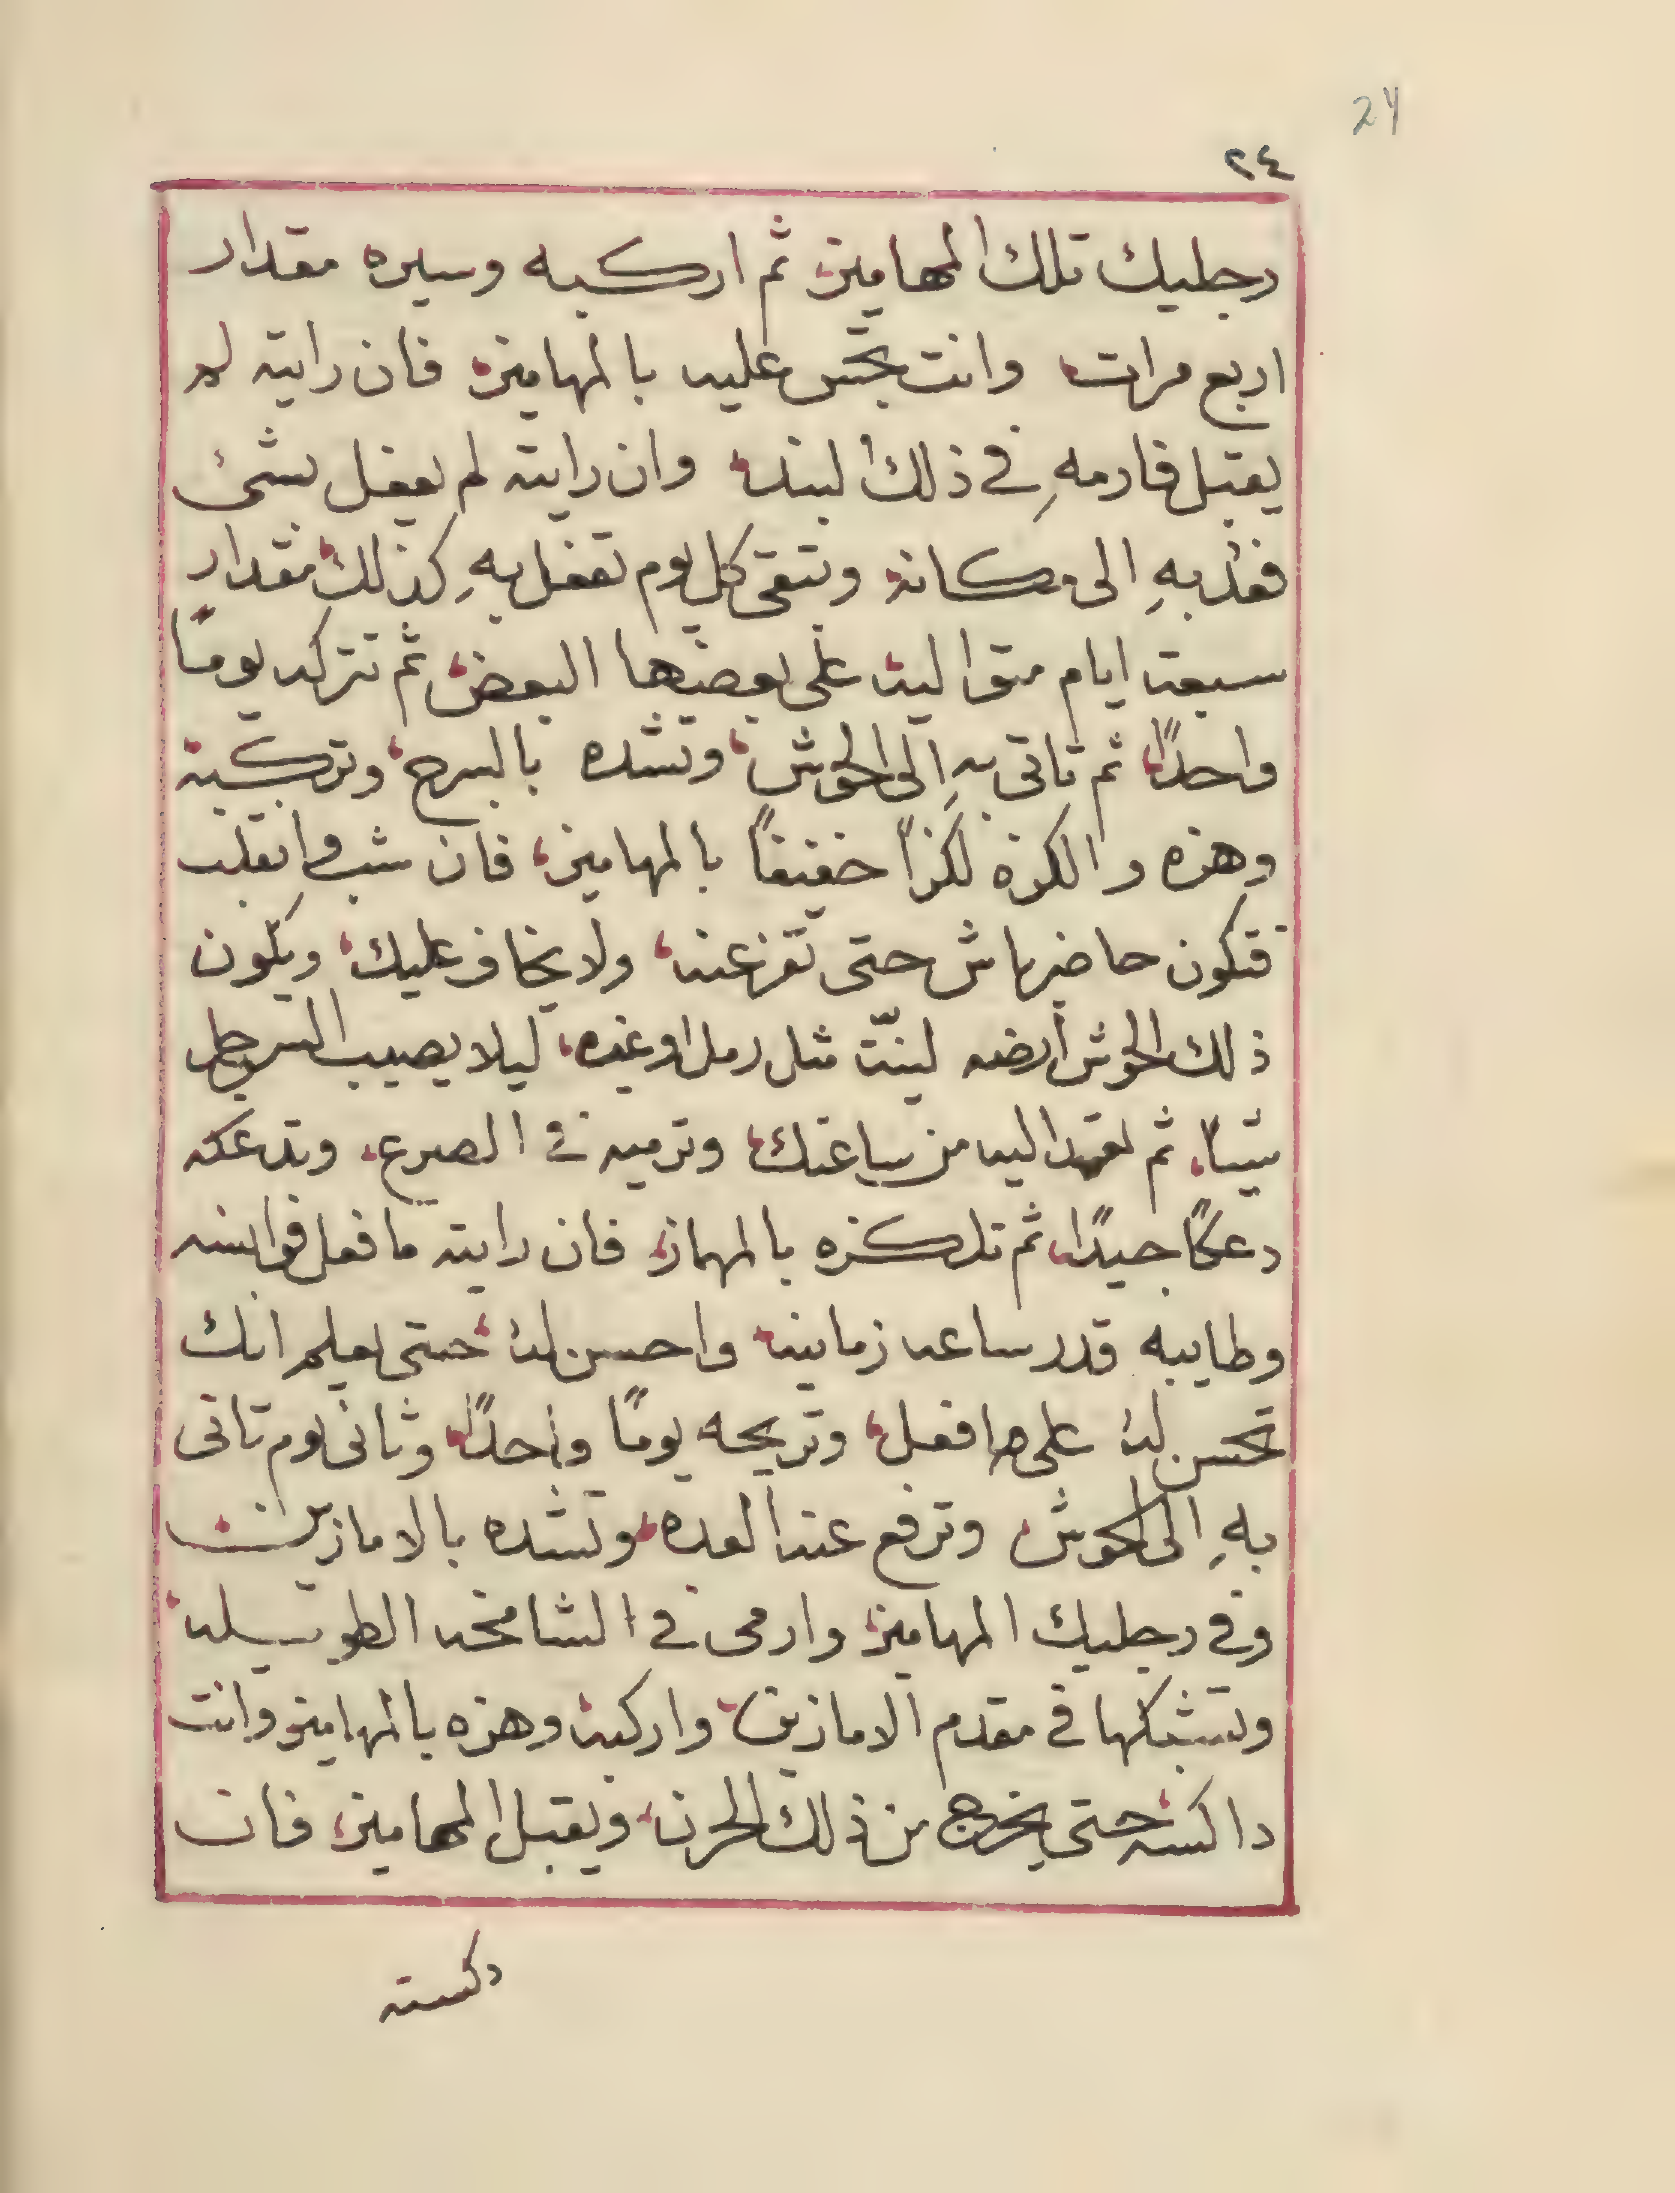 24
٢٤
رجليك تلك المهاميز، ثم اركبه وسيره مقدار
اربع مرات، وانت تحس عليه بالمهاميز، فان رايته لم
يقبل فارمهِ في ذلك لبنة، وان رايته لم يفعل بشئ
فغذ بهِ الى مكانه، وتبقى كل يوم تفعل بهِ كذلك، مقدار
سبعة ايام متواليه، على بعضها البعض، ثم تتركه يومًا
واحدًا، ثم تاتي بهِ الى الحوش، وتشده بالسرج، وتركبه
وهزه والكزه لكزًا خفيفًا بالمهاميز، فان شب وانقلب
فتكون حاضر باش حتى تفز عنه، ولا يخاف عليك، ويكون
ذلك الحوش أرضه لينّة مثل رمل او غيره، ليلا يصيب الرجل
شيًا، ثم تعيد اليه من ساعتك، وترميه في الصرع، وتدعكه
دعكًا جيدًا، ثم تلكزه بالمهماز، فان رايته ما فعل فوانسه
وطايبه قدر ساعه زمانيه، واحسن له، حتى يعلم انك
تحسن له على ما فعل، وتريحه يومًا واحدًا، وثاني يوم تاتي
بهِ الى الحوش وترفع عنه العده، وتشده بالامازين
وفي رجليك المهاميز، وارمي في الشامخه الطويله،
وتشبكها في مقدم الامازين، واركبه وهزه بالمهاميز وانت
داكسه، حتى يخرج من ذلك الحرن، ويقبل المهاميز، فان
دكسته